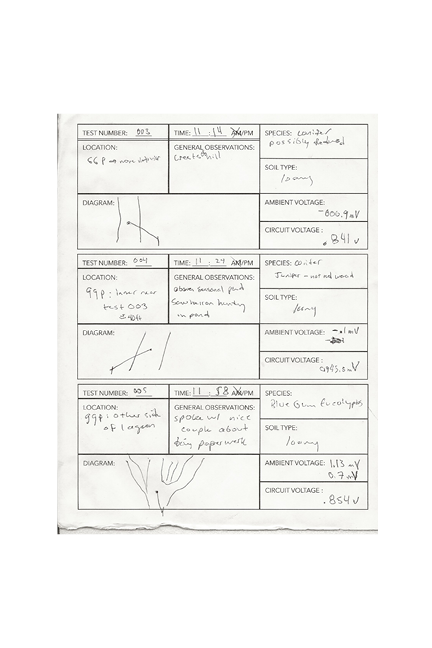 TEST NUMBER: 003
TIME: 11:14 AM/PM
SPECIES: conifer
possibly
LOCATION:
GGP
GENERAL OBSERVATIONS:
hill
SOIL TYPE:
loamy
DIAGRAM:
AMBIENT VOLTAGE:
-000.9mV
CIRCUIT VOLTAGE:
.841 v
TEST NUMBER: 004
TIME: 11:24 AM/PM
SPECIES: conifer
Juniper - not redwood
LOCATION:
GGP: near
test 003
GENERAL OBSERVATIONS:
above pond
hunting
in pond
SOIL TYPE:
loamy
DIAGRAM:
AMBIENT VOLTAGE: -.1mV
CIRCUIT VOLTAGE:
TEST NUMBER: 005
TIME: 11:58 AM/PM
SPECIES:
Blue Gum Eucalyptus
LOCATION:
GGP: other side
of lagoon
GENERAL OBSERVATIONS:
spoke w/ nice
couple about
paperwork
SOIL TYPE:
loamy
DIAGRAM:
AMBIENT VOLTAGE: 1.13 mV
0.7 mV
CIRCUIT VOLTAGE:
.854 v